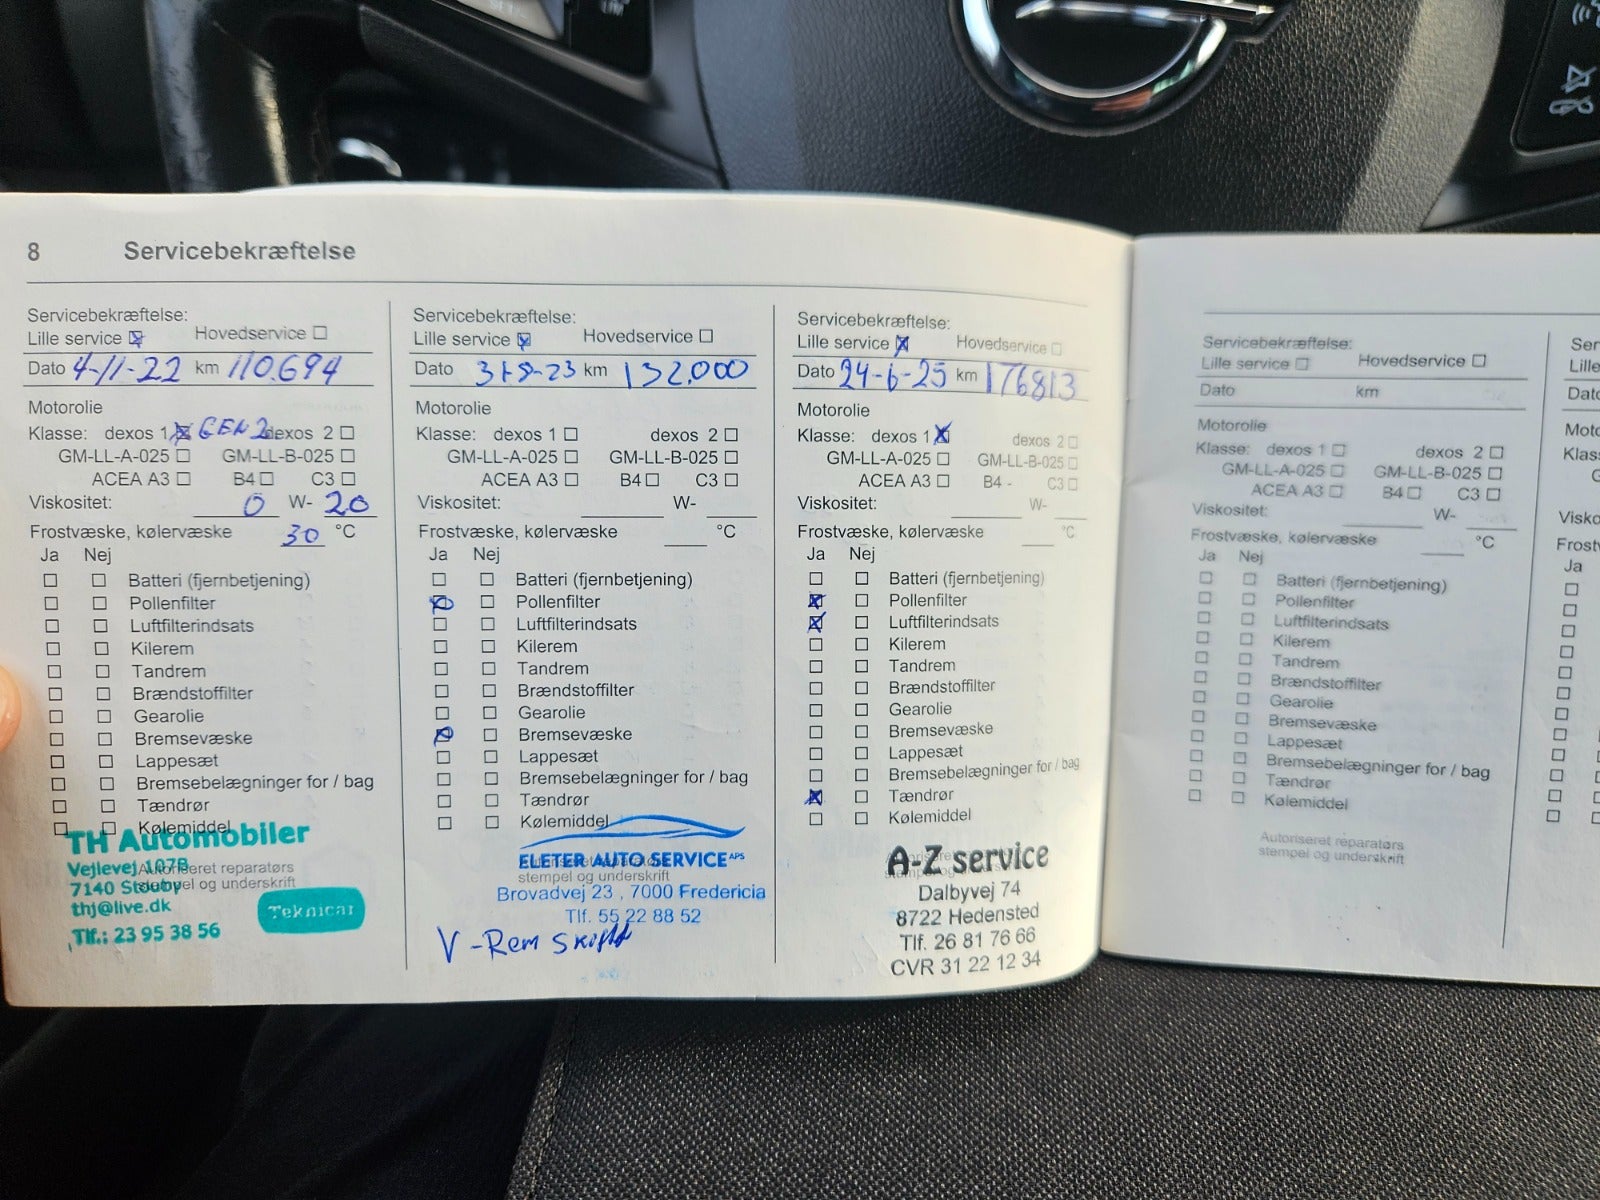 8 Servicebekræftelse
Servicebekræftelse:
Lille service ☒ Hovedservice ☐
Dato 4-11-22 km 110.694
Motorolie
Klasse: dexos 1 ☒ GEN 2 dexos 2 ☐
GM-LL-A-025 ☐ GM-LL-B-025 ☐
ACEA A3 ☐ B4 ☐ C3 ☐
Viskositet: 0 W- 20
Frostvæske, kølervæske 30 °C
Ja Nej
☐ ☐ Batteri (fjernbetjening)
☐ ☐ Pollenfilter
☐ ☐ Luftfilterindsats
☐ ☐ Kilerem
☐ ☐ Tandrem
☐ ☐ Brændstoffilter
☐ ☐ Gearolie
☐ ☐ Bremsevæske
☐ ☐ Lappesæt
☐ ☐ Bremsebelægninger for / bag
☐ ☐ Tændrør
☐ ☐ Kølemiddel
Autoriseret reparatørs
stempel og underskrift
TH Automobiler
Vejlevej 107B
7140 Stouby
thj@live.dk
Tlf.: 23 95 38 56
Teknicar
Servicebekræftelse:
Lille service ☒ Hovedservice ☐
Dato 31-8-23 km 132.000
Motorolie
Klasse: dexos 1 ☐ dexos 2 ☐
GM-LL-A-025 ☐ GM-LL-B-025 ☐
ACEA A3 ☐ B4 ☐ C3 ☐
Viskositet: W-
Frostvæske, kølervæske °C
Ja Nej
☐ ☐ Batteri (fjernbetjening)
☒ ☐ Pollenfilter
☐ ☐ Luftfilterindsats
☐ ☐ Kilerem
☐ ☐ Tandrem
☐ ☐ Brændstoffilter
☐ ☐ Gearolie
☒ ☐ Bremsevæske
☐ ☐ Lappesæt
☐ ☐ Bremsebelægninger for / bag
☐ ☐ Tændrør
☐ ☐ Kølemiddel
stempel og underskrift
ELETER AUTO SERVICE APS
Brovadvej 23 , 7000 Fredericia
Tlf. 55 22 88 52
V-Rem skift
Servicebekræftelse:
Lille service ☒ Hovedservice ☐
Dato 24-6-25 km 176813
Motorolie
Klasse: dexos 1 ☒ dexos 2 ☐
GM-LL-A-025 ☐ GM-LL-B-025 ☐
ACEA A3 ☐ B4 - C3 ☐
Viskositet: W-
Frostvæske, kølervæske °C
Ja Nej
☐ ☐ Batteri (fjernbetjening)
☒ ☐ Pollenfilter
☒ ☐ Luftfilterindsats
☐ ☐ Kilerem
☐ ☐ Tandrem
☐ ☐ Brændstoffilter
☐ ☐ Gearolie
☐ ☐ Bremsevæske
☐ ☐ Lappesæt
☐ ☐ Bremsebelægninger for / bag
☒ ☐ Tændrør
☐ ☐ Kølemiddel
A-Z service
Dalbyvej 74
8722 Hedensted
Tlf. 26 81 76 66
CVR 31 22 12 34
Servicebekræftelse:
Lille service ☐ Hovedservice ☐
Dato km
Motorolie
Klasse: dexos 1 ☐ dexos 2 ☐
GM-LL-A-025 ☐ GM-LL-B-025 ☐
ACEA A3 ☐ B4 ☐ C3 ☐
Viskositet: W-
Frostvæske, kølervæske °C
Ja Nej
☐ ☐ Batteri (fjernbetjening)
☐ ☐ Pollenfilter
☐ ☐ Luftfilterindsats
☐ ☐ Kilerem
☐ ☐ Tandrem
☐ ☐ Brændstoffilter
☐ ☐ Gearolie
☐ ☐ Bremsevæske
☐ ☐ Lappesæt
☐ ☐ Bremsebelægninger for / bag
☐ ☐ Tændrør
☐ ☐ Kølemiddel
Autoriseret reparatørs
stempel og underskrift
Ja